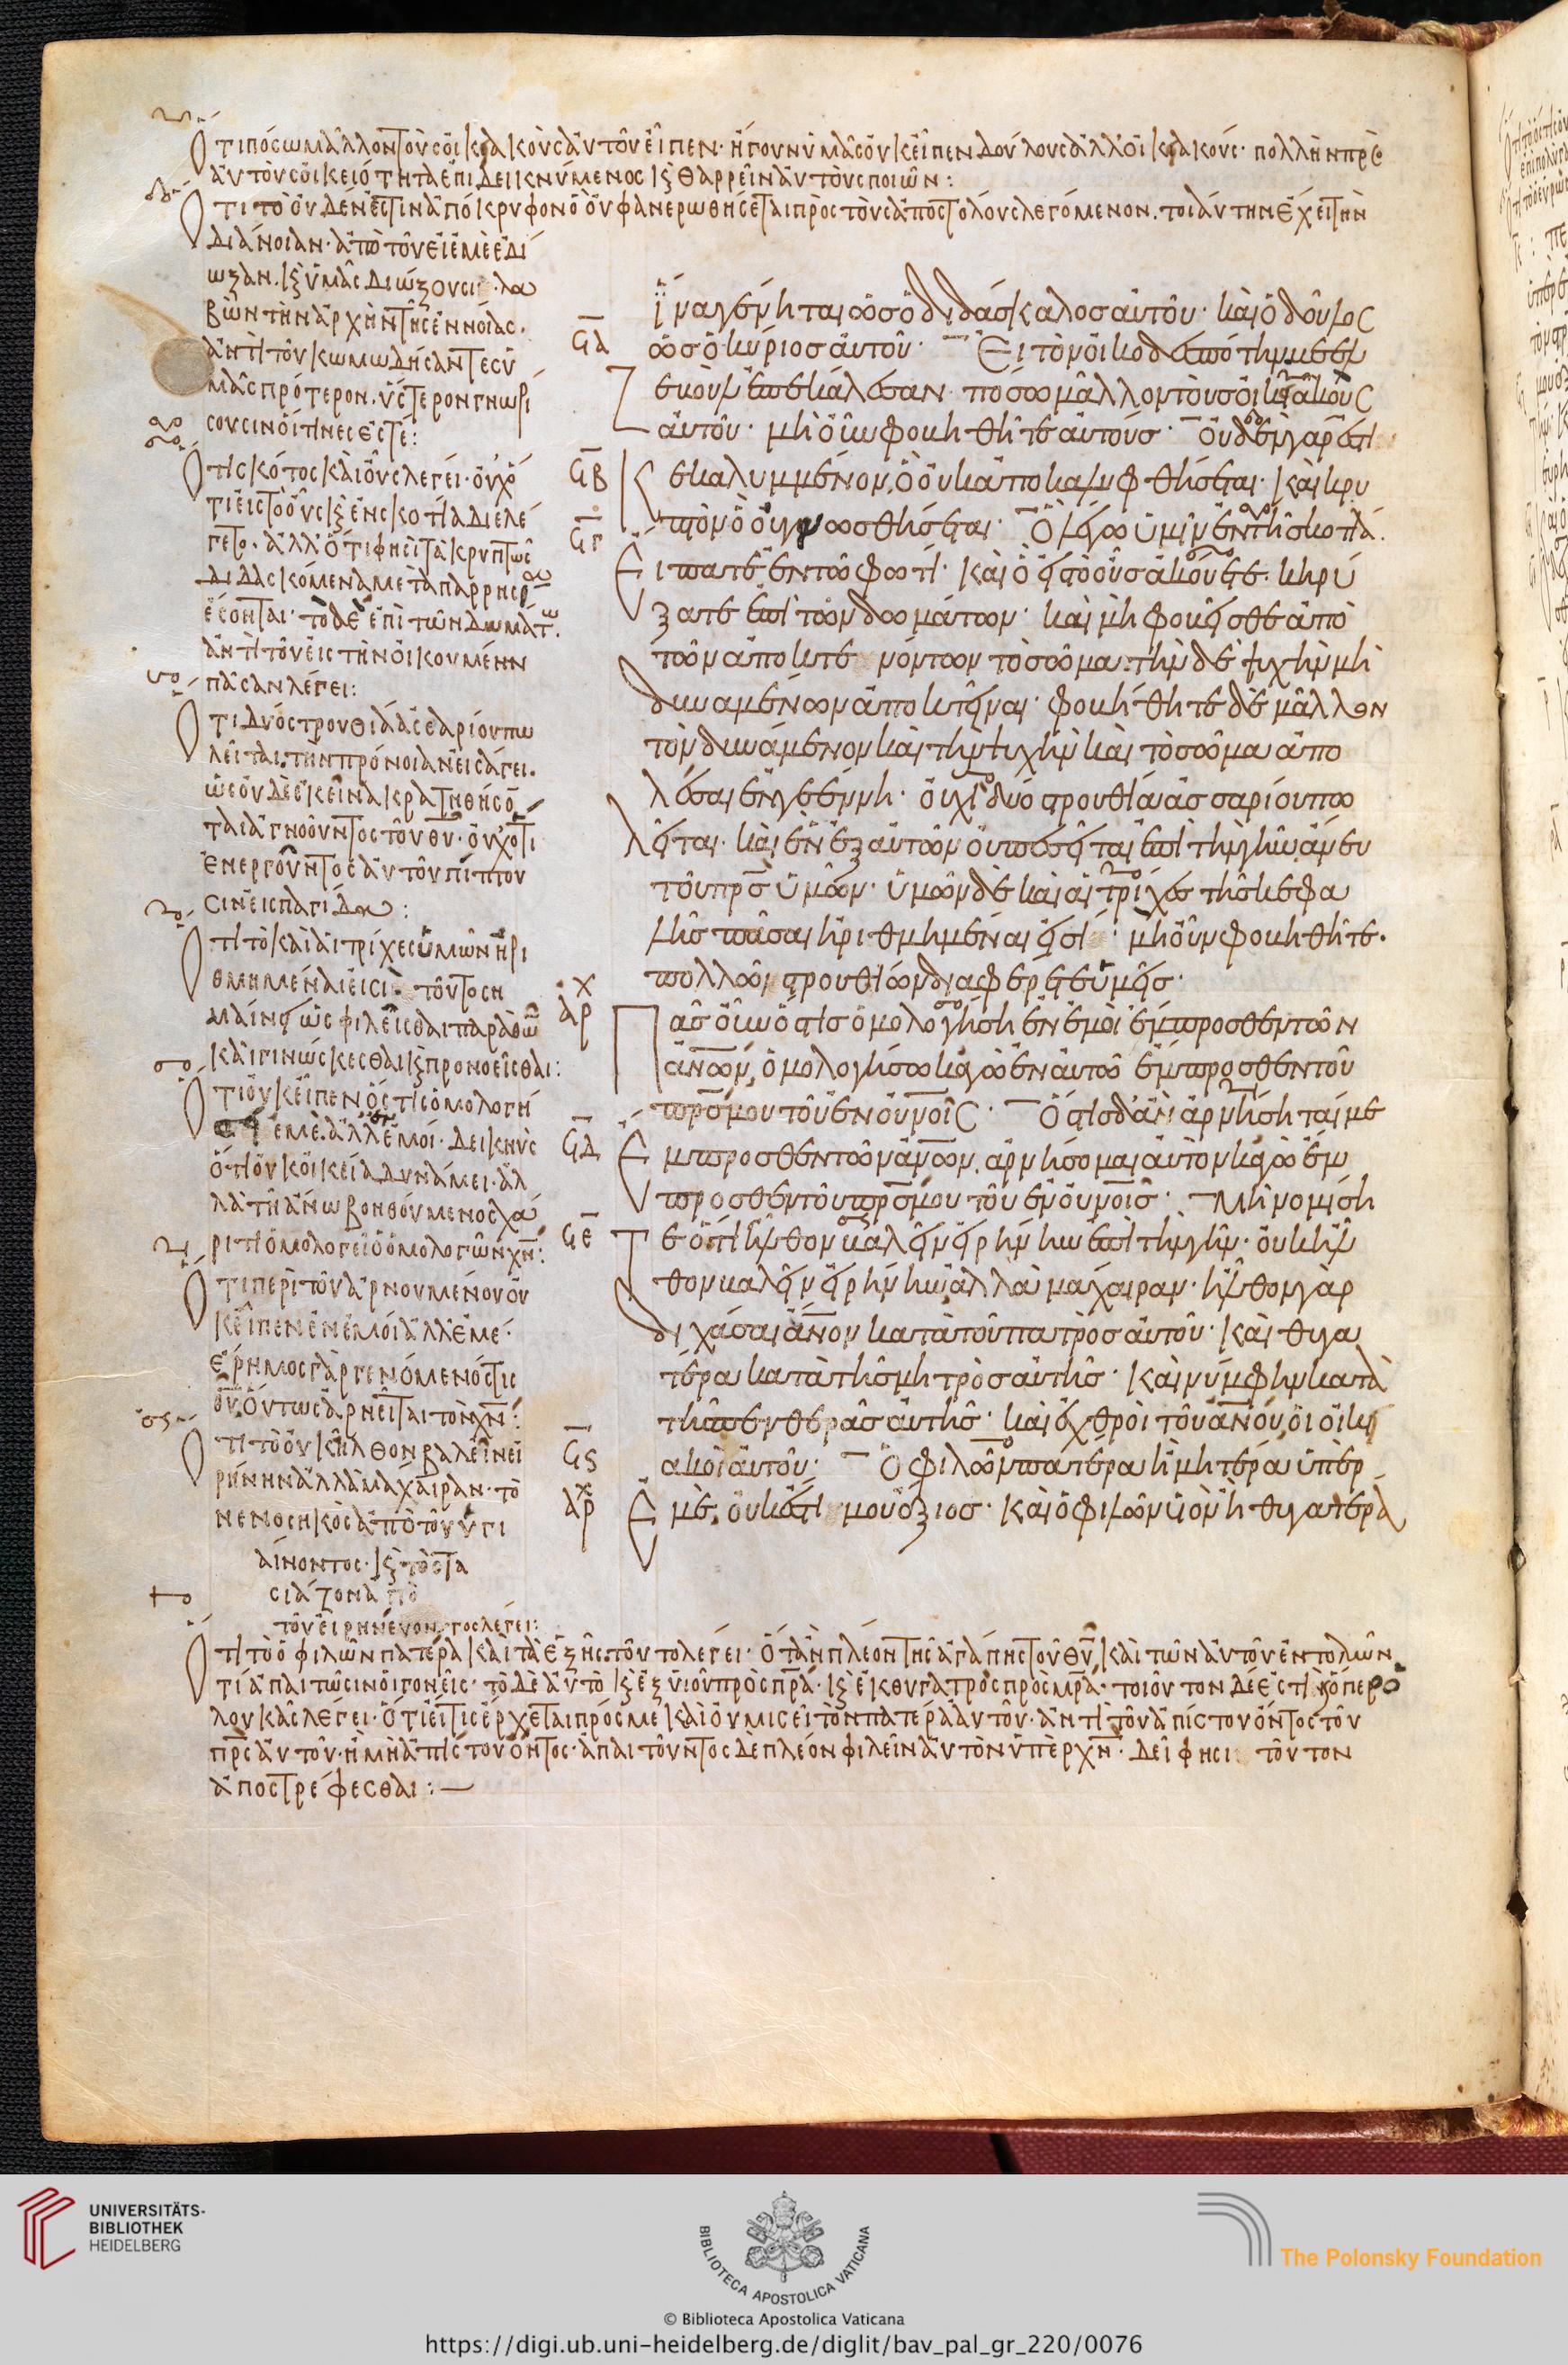 ὅτι πόσω μᾶλλον τοὺς οἰκιακοὺς αὐτοῦ εἶπεν· ἤγουν ὑμᾶς οὐκ εἶπεν δούλους ἀλλ' οἰκιακούς· πολλὴν πρὸς
αὐτοὺς οἰκειότητα ἐπιδεικνύμενος κ θαρρεῖν αὐτοὺς ποιῶν:
ὅτι τὸ οὐδέν ἐστιν ἀπόκρυφον ὃ οὐ φανερωθήσεται πρὸς τοὺς ἀποστόλους λεγόμενον. τοιαύτην ἔχει τὴν
διάνοιαν· ἀπὸ τοῦ εἰ ἐμὲ ἐδί
ωξαν. κ ὑμᾶς διώξουσι λα
βὼν τὴν ἀρχὴν τῆς ἐννοίας.
ἀντὶ τοῦ κωμωδήσαντες ὑ
μᾶς πρότερον. ὕστερον γνωρί
σουσιν οἵτινες ἐστέ:
τί σκότος καὶ οὖς λέγει· οὐχ ὅ
τι εἰς τὸ οὖς κ ἐν σκοτία διελέ
γετο· ἀλλ' ὅτι φησὶ τὰ κρυπτῶς
διδασκόμενα μετὰ παρρησί
ἔσονται· τὸ δὲ ἐπὶ τῶν δωμάτ.
ἀντὶ τοῦ εἰς τὴν οἰκουμένην
πᾶσαν λέγει:
ὅτι δύο στρουθία ἀσσαρίου πω
λεῖται. τὴν πρόνοιαν εἰσάγει.
ὡς οὐδὲ ἐκεῖνα κρατηθήσον
ται ἀγνοοῦντος τοῦ θυ· οὐχ ὅτι
ἐνεργοῦντος αὐτοῦ πίπτου
σιν εἰς παγίδα:
ὅτι τὸ καὶ αἱ τρίχες ὑμῶν ἠρι
θμημέναι εἰσὶ. τοῦτο ση
μαίνει ὡς φιλεῖσθαι παρὰ θω
καὶ γινώσκεσθαι κ προνοεῖσθαι:
ὅτι οὐκ εἶπεν ὅστις ὁμολογή
ἐμὲ. ἀλλ' ἐν ἐμοί· δεικνὺς
ὅτι οὐκ οἰκεία δυνάμει· ἀλ
λὰ τῆ ἄνω βοηθούμενος χά
ριτι ὁμολογεῖ ὁ ὁμολογῶν χν:
ὅτι περὶ τοῦ ἀρνουμένου οὐ
κ εἶπεν ἐν ἐμοὶ ἀλλ' ἐμέ·
ἔρημος γὰρ γενόμενός τις
οὕτως ἀρνεῖται τὸν χν:
ὅτι τὸ οὐκ ἦλθον βαλεῖν εἰ
ρήνην ἀλλὰ μάχαιραν· τὸ
νενοσηκὸς ἀπὸ τοῦ ὑγι
αίνοντος· κ τὸ στα
σιάζον ἀπὸ
τοῦ εἰρηνέυοντος λέγει:
ὅτι τὸ ὁ φιλῶν πατέρα καὶ τὰ ἑξῆς. τοῦτο λέγει· ὅταν πλέον τῆς ἀγάπης τοῦ θυ, καὶ τῶν αὐτοῦ ἐντολῶν
τὶ ἀπαιτῶσιν οἱ γονεῖς· τὸ δὲ αὐτὸ κ ἐξ υἱοῦ πρὸς πρα· κ ἐκ θυγατρὸς πρὸς μρα· τοιοῦτον δέ ἐστι κ ὅπερ ὁ
λουκᾶς λέγει· ὅτι εἴ τις ἔρχεται πρός με καὶ οὐ μισεῖ τὸν πατέρα αὐτοῦ· ἀντὶ τοῦ ἀπίστου ὄντος τοῦ
πρς αὐτοῦ· ἢ μὴ ἀπίστου ὄντος· ἀπαιτοῦντος δὲ πλέον φιλεῖν αὐτὸν ὑπὲρ χν· δεῖ φησι τοῦτον
ἀποστρέφεσθαι:
ἵνα γένηται ὡς ὁ διδάσκαλος αὐτοῦ· καὶ ὁ δοῦλος
ϟα ὡς ὁ κύριος αὐτοῦ· Εἰ τὸν οἰκοδεσπότην βεελ
ζεβοὺλ ἐπεκάλεσαν· πόσω μᾶλλον τοὺς οἰκιακοὺς
αὐτοῦ· μὴ οὖν φοβηθῆτε αὐτούς· οὐδὲν γάρ ἐστι
ϟβ κεκαλυμμένον, ὃ οὐκ ἀποκαλυφθήσεται· καὶ κρυ
ϟγ πτὸν ὃ οὐ γνωσθήσεται· Ὃ λέγω ὑμῖν ἐν τῆ σκοτία.
εἴπατε ἐν τῶ φωτί· καὶ ὃ εἰς τὸ οὖς ἀκούετε. κηρύ
ξατε ἐπὶ τῶν δωμάτων· καὶ μὴ φοβεῖσθε ἀπὸ
τῶν ἀποκτενόντων τὸ σῶμα. τὴν δὲ ψυχὴν μὴ
δυναμένων ἀποκτεῖναι· φοβήθητε δὲ μᾶλλον
τὸν δυνάμενον καὶ τὴν ψυχὴν καὶ τὸ σῶμα ἀπο
λέσαι ἐν γεέννη· οὐχὶ δύο στρουθία ἀσσαρίου πω
λεῖται. καὶ ἓν ἐξ αὐτῶν οὐ πεσεῖται ἐπὶ τὴν γῆν ἄνευ
τοῦ πρς ὑμῶν· ὑμῶν δὲ καὶ αἱ τρίχες τῆς κεφα
λῆς πᾶσαι ἠριθμημέναι εἰσί· μὴ οὖν φοβηθῆτε.
πολλῶν στρουθίων διαφέρετε ὑμεῖς·
αρχ Πᾶς οὖν ὅστις ὁμολογήση ἐν ἐμοὶ ἔμπροσθεν τῶν
ανων, ὁμολογήσω καγὼ ἐν αὐτῶ ἔμπροσθεν τοῦ
πρς μου τοῦ ἐν ουνοις· Ὅστις δ' ἂν ἀρνήσηταί με
ϟδ ἔμπροσθεν τῶν ανων, ἀρνήσομαι αὐτὸν καγὼ ἔμ
προσθεν τοῦ πρς μου τοῦ ἐν ουνοις· Μὴ νομίση
ϟε τε ὅτι ἦλθον βαλεῖν εἰρήνην ἐπὶ τὴν γῆν· οὐκ ἦλ
θον βαλεῖν εἰρήνην ἀλλὰ μάχαιραν· ἦλθον γὰρ
διχάσαι ανον κατὰ τοῦ πατρὸς αὐτοῦ· καὶ θυγα
τέρα κατὰ τῆς μητρὸς αὐτῆς· καὶ νύμφην κατὰ
τῆς πενθερᾶς αὐτῆς· καὶ ἐχθροὶ τοῦ ανου, οἱ οἰκι
ϟς ακοὶ αὐτοῦ· Ὁ φιλῶν πατέρα ἢ μητέρα ὑπὲρ
αρχ ἐμὲ, οὐκ ἔστι μου ἄξιος· καὶ ὁ φιλῶν υἱὸν ἢ θυγατέρα
UNIVERSITÄTS-
BIBLIOTHEK
HEIDELBERG
BIBLIOTECA APOSTOLICA VATICANA
© Biblioteca Apostolica Vaticana
The Polonsky Foundation
https://digi.ub.uni-heidelberg.de/diglit/bav_pal_gr_220/0076